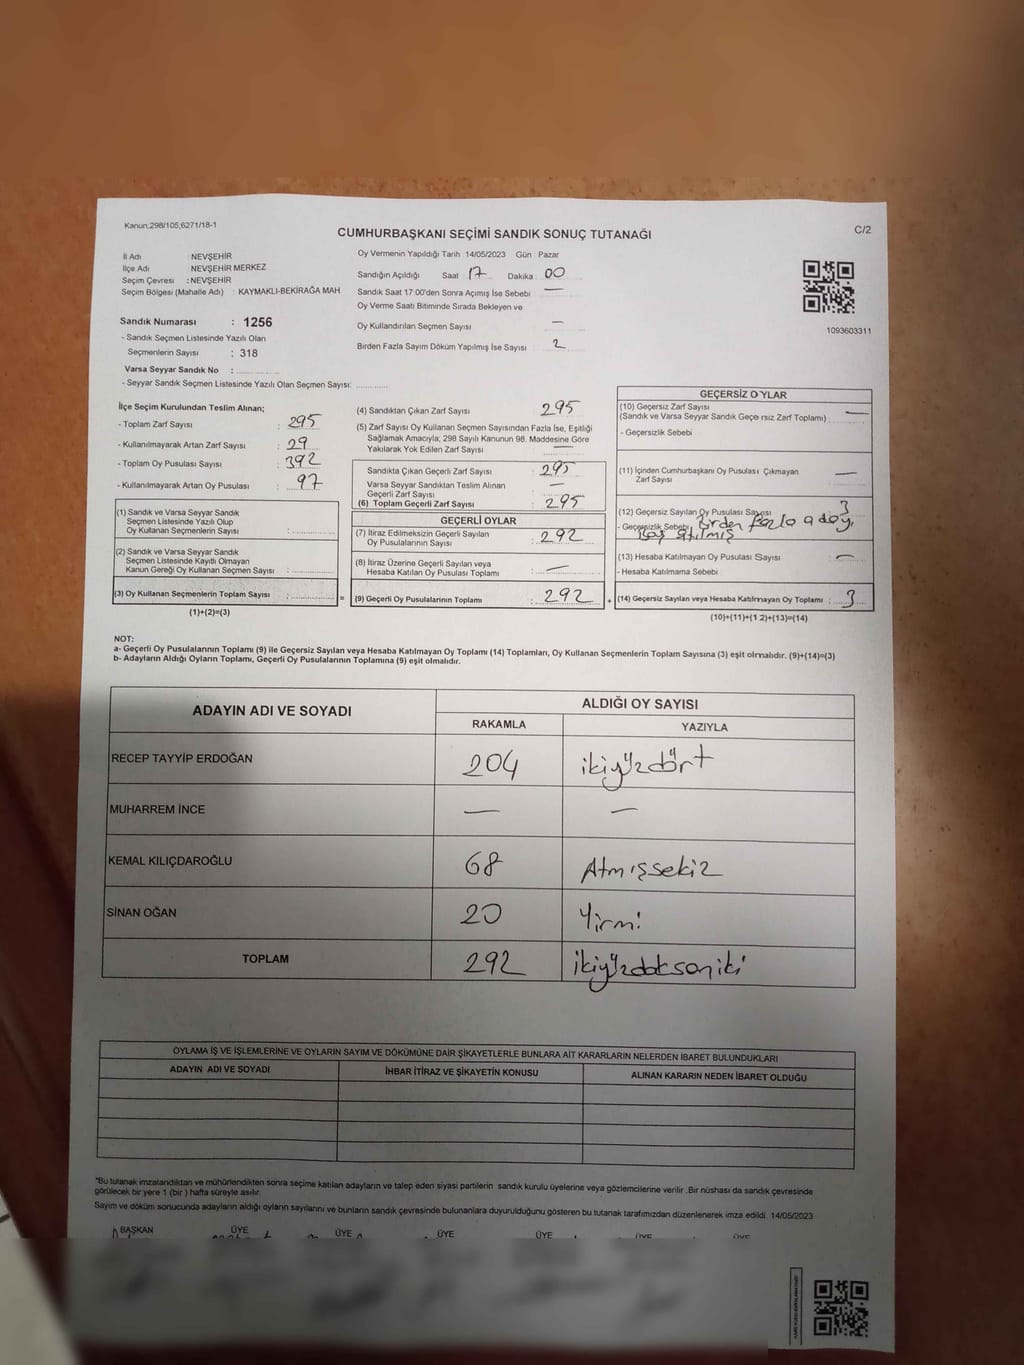 Kanun;298/105;6271/18-1
C/2
CUMHURBAŞKANI SEÇİMİ SANDIK SONUÇ TUTANAĞI
İl Adı : NEVŞEHİR
İlçe Adı NEVŞEHİR MERKEZ
Seçim Çevresi : NEVŞEHİR
Seçim Bölgesi (Mahalle Adı) : KAYMAKLI-BEKİRAĞA MAH.
Sandık Numarası : 1256
- Sandık Seçmen Listesinde Yazılı Olan
Seçmenlerin Sayısı : 318
Varsa Seyyar Sandık No :
- Seyyar Sandık Seçmen Listesinde Yazılı Olan Seçmen Sayısı:
Oy Vermenin Yapıldığı Tarih 14/05/2023 Gün Pazar
Sandığın Açıldığı Saat 17 Dakika 00
Sandık Saat 17 00'den Sonra Açımış İse Sebebi —
Oy Verme Saati Bitiminde Sırada Bekleyen ve
Oy Kullandırılan Seçmen Sayısı —
Birden Fazla Sayım Döküm Yapılmış İse Sayısı 2
1093603311
İlçe Seçim Kurulundan Teslim Alınan;
- Toplam Zarf Sayısı : 295
- Kullanılmayarak Artan Zarf Sayısı : 29
- Toplam Oy Pusulası Sayısı : 392
- Kullanılmayarak Artan Oy Pusulası : 97
(1) Sandık ve Varsa Seyyar Sandık
Seçmen Listesinde Yazılı Olup
Oy Kullanan Seçmenlerin Sayısı :
(2) Sandık ve Varsa Seyyar Sandık
Seçmen Listesinde Kayıtlı Olmayan
Kanun Gereği Oy Kullanan Seçmen Sayısı :
(3) Oy Kullanan Seçmenlerin Toplam Sayısı :
(1)+(2)=(3)
(4) Sandıktan Çıkan Zarf Sayısı 295
(5) Zarf Sayısı Oy Kullanan Seçmen Sayısından Fazla İse, Eşitliği
Sağlamak Amacıyla; 298 Sayılı Kanunun 98. Maddesine Göre
Yakılarak Yok Edilen Zarf Sayısı —
Sandıkta Çıkan Geçerli Zarf Sayısı : 295
Varsa Seyyar Sandıktan Teslim Alınan
Geçerli Zarf Sayısı —
(6) Toplam Geçerli Zarf Sayısı : 295
GEÇERLİ OYLAR
(7) İtiraz Edilmeksizin Geçerli Sayılan
Oy Pusulalarının Sayısı : 292
(8) İtiraz Üzerine Geçerli Sayılan veya
Hesaba Katılan Oy Pusulası Toplamı : —
= (9) Geçerli Oy Pusulalarının Toplamı : 292
GEÇERSİZ OYLAR
(10) Geçersiz Zarf Sayısı
(Sandık ve Varsa Seyyar Sandık Geçersiz Zarf Toplamı) —
- Geçersizlik Sebebi
(11) İçinden Cumhurbaşkanı Oy Pusulası Çıkmayan
Zarf Sayısı —
(12) Geçersiz Sayılan Oy Pusulası Sayısı 3
- Geçersizlik Sebebi Birden fazla aday,
boş atılmış
(13) Hesaba Katılmayan Oy Pusulası Sayısı —
- Hesaba Katılmama Sebebi
+ (14) Geçersiz Sayılan veya Hesaba Katılmayan Oy Toplamı : 3
(10)+(11)+(1 2)+(13)=(14)
NOT:
a- Geçerli Oy Pusulalarının Toplamı (9) ile Geçersiz Sayılan veya Hesaba Katılmayan Oy Toplamı (14) Toplamları, Oy Kullanan Seçmenlerin Toplam Sayısına (3) eşit olmalıdır. (9)+(14)=(3)
b- Adayların Aldığı Oyların Toplamı, Geçerli Oy Pusulalarının Toplamına (9) eşit olmalıdır.
ADAYIN ADI VE SOYADI
ALDIĞI OY SAYISI
RAKAMLA YAZIYLA
RECEP TAYYİP ERDOĞAN 204 ikiyüzdört
MUHARREM İNCE — —
KEMAL KILIÇDAROĞLU 68 Atmışsekiz
SİNAN OĞAN 20 Yirmi
TOPLAM 292 ikiyüzdoksaniki
OYLAMA İŞ VE İŞLEMLERİNE VE OYLARIN SAYIM VE DÖKÜMÜNE DAİR ŞİKAYETLERLE BUNLARA AİT KARARLARIN NELERDEN İBARET BULUNDUKLARI
ADAYIN ADI VE SOYADI İHBAR İTİRAZ VE ŞİKAYETİN KONUSU ALINAN KARARIN NEDEN İBARET OLDUĞU
"Bu tutanak imzalandıktan ve mühürlendikten sonra seçime katılan adayların ve talep eden siyasi partilerin sandık kurulu üyelerine veya gözlemcilerine verilir .Bir nüshası da sandık çevresinde
görülecek bir yere 1 (bir ) hafta süreyle asılır.
Sayım ve döküm sonucunda adayların aldığı oyların sayılarını ve bunların sandık çevresinde bulunanlara duyurulduğunu gösteren bu tutanak tarafımızdan düzenlenerek imza edildi. 14/05/2023
BAŞKAN ÜYE ÜYE ÜYE ÜYE ÜYE ÜYE